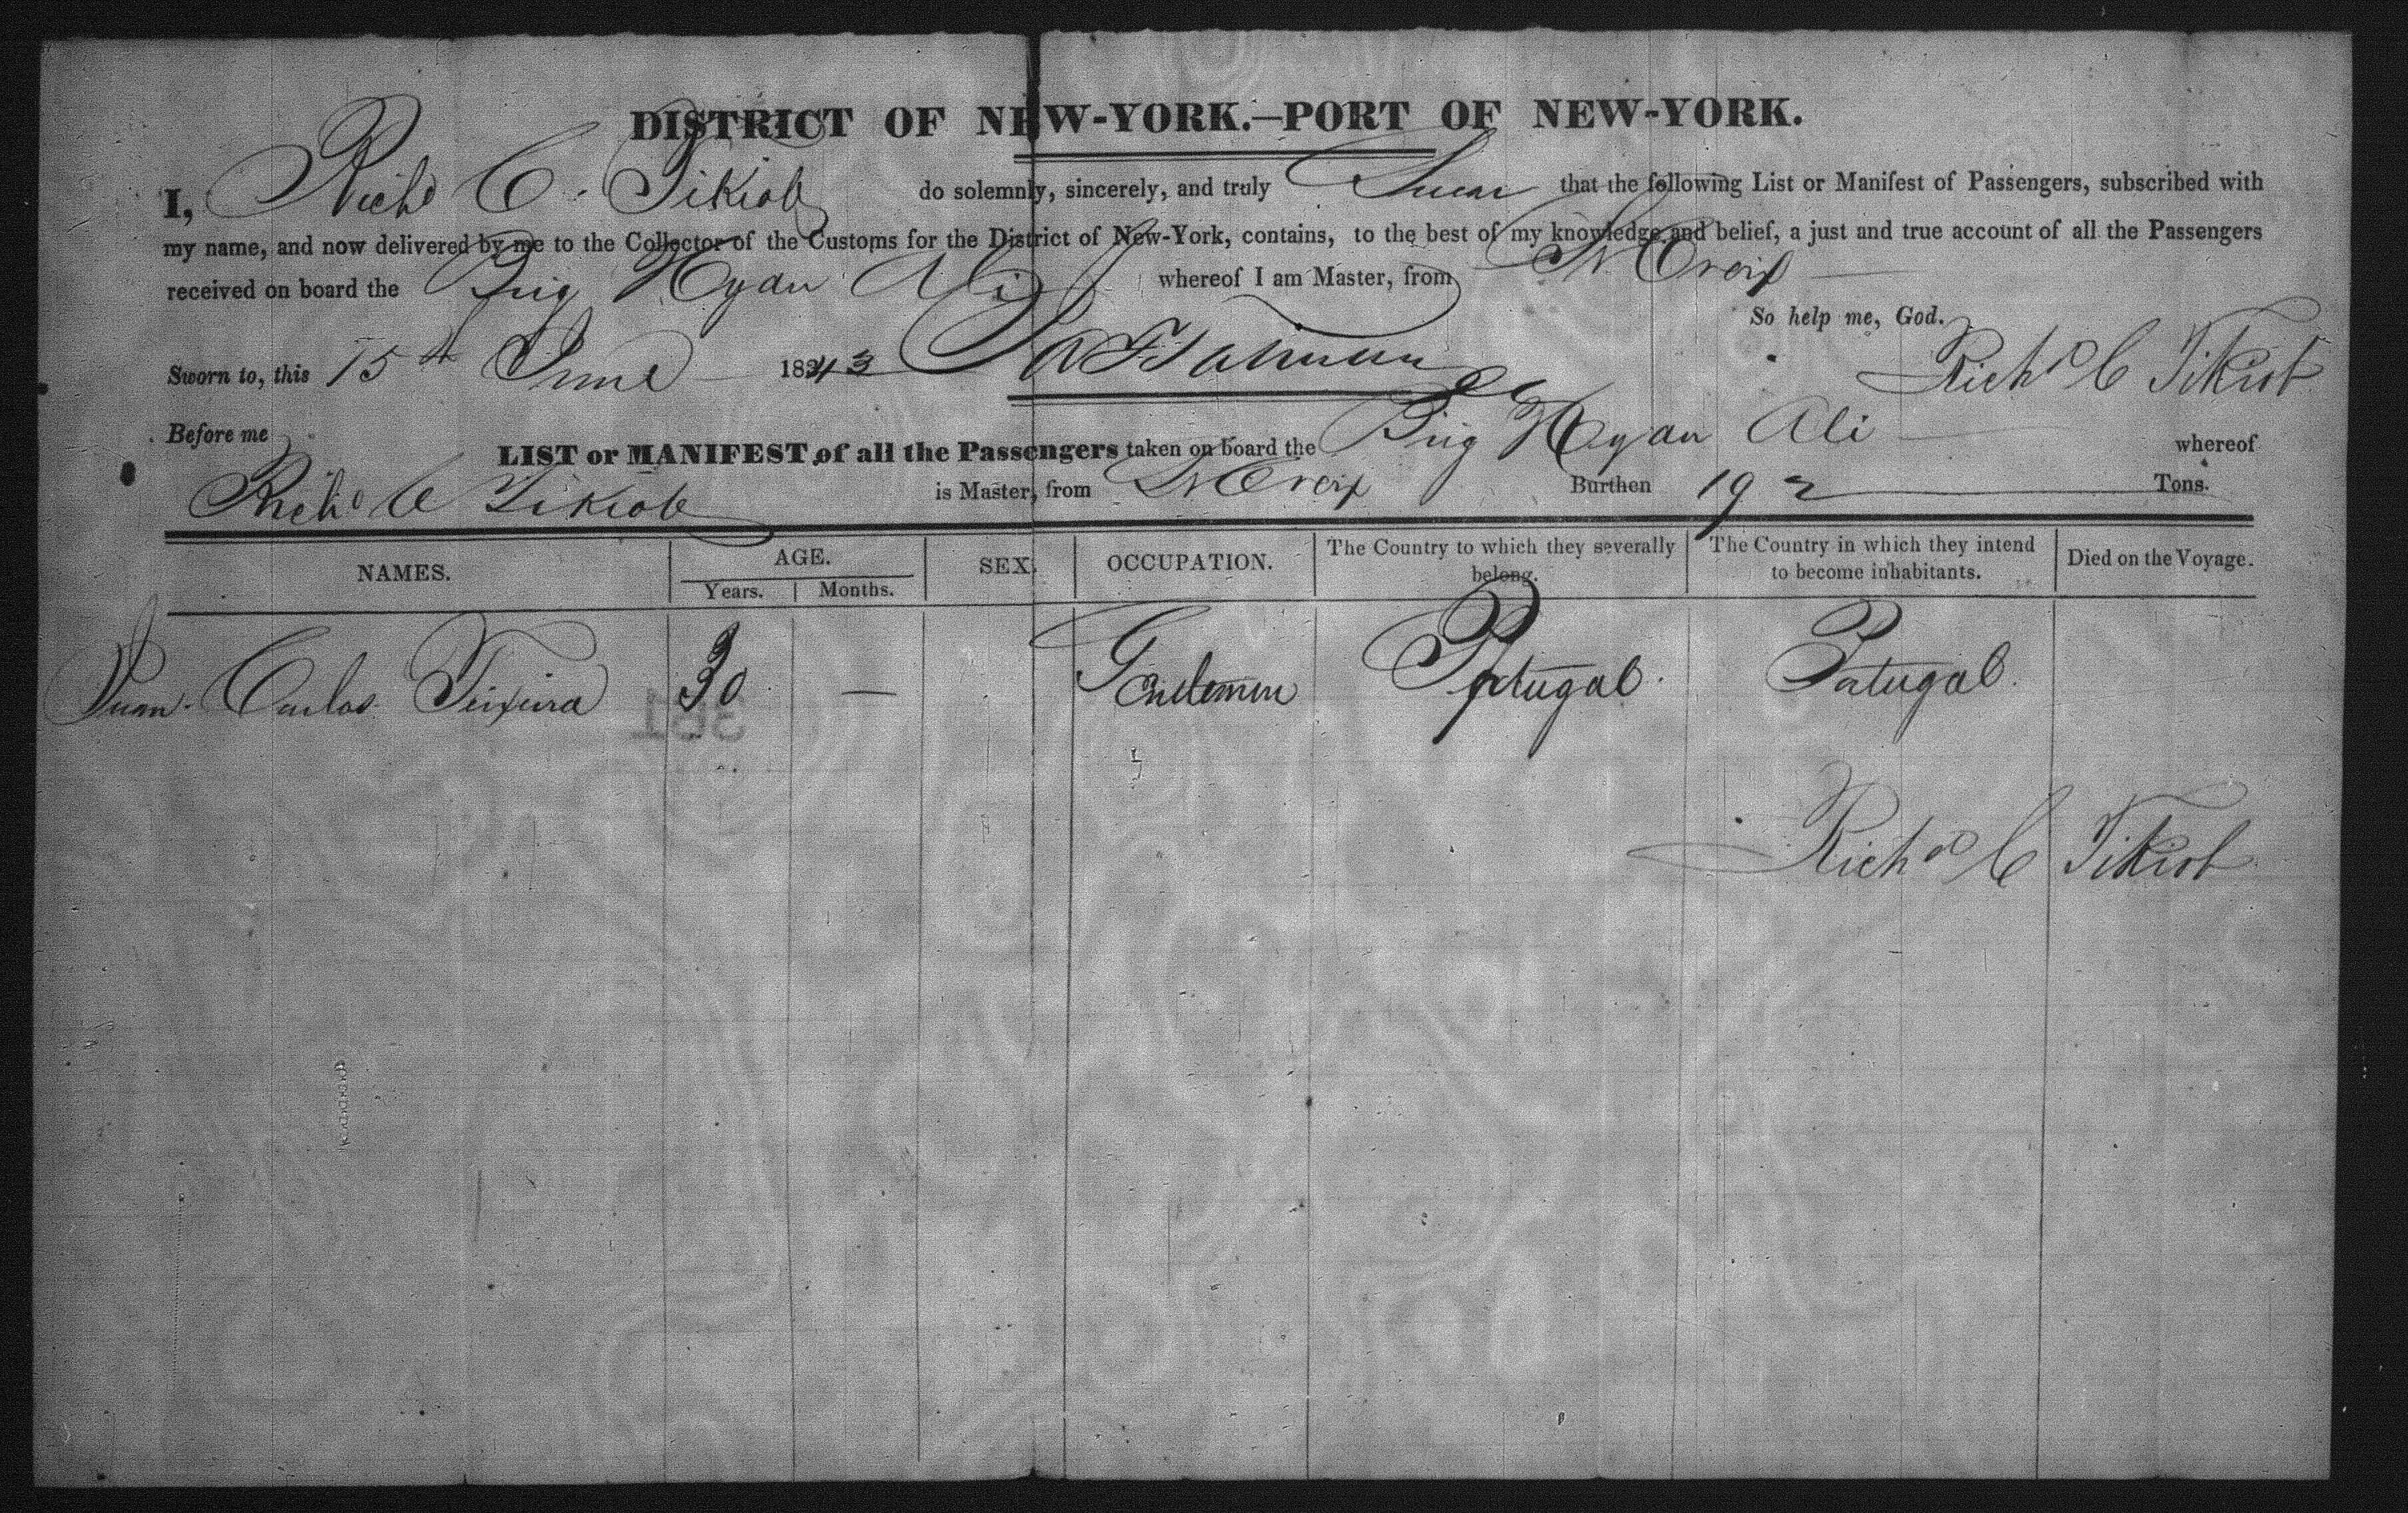 DISTRICT OF NEW-YORK.—PORT OF NEW-YORK.
I, Richd C. Tikiob do solemnly, sincerely, and truly Swear that the following List or Manifest of Passengers, subscribed with
my name, and now delivered by me to the Collector of the Customs for the District of New-York, contains, to the best of my knowledge and belief, a just and true account of all the Passengers
received on board the Brig Hyder Ali whereof I am Master, from St Croix
So help me, God.
Sworn to, this 15th June 1843 Richd C Tikiob
Before me
LIST or MANIFEST of all the Passengers taken on board the Brig Hyder Ali whereof
Richd C Tikiob is Master, from St Croix Burthen 192 Tons.
NAMES. AGE. SEX. OCCUPATION. The Country to which they severally belong. The Country in which they intend to become inhabitants. Died on the Voyage.
Years. Months.
Juan Carlos Teixeira 30 — Gentlemen Portugal. Portugal.
Richd C Tikiob